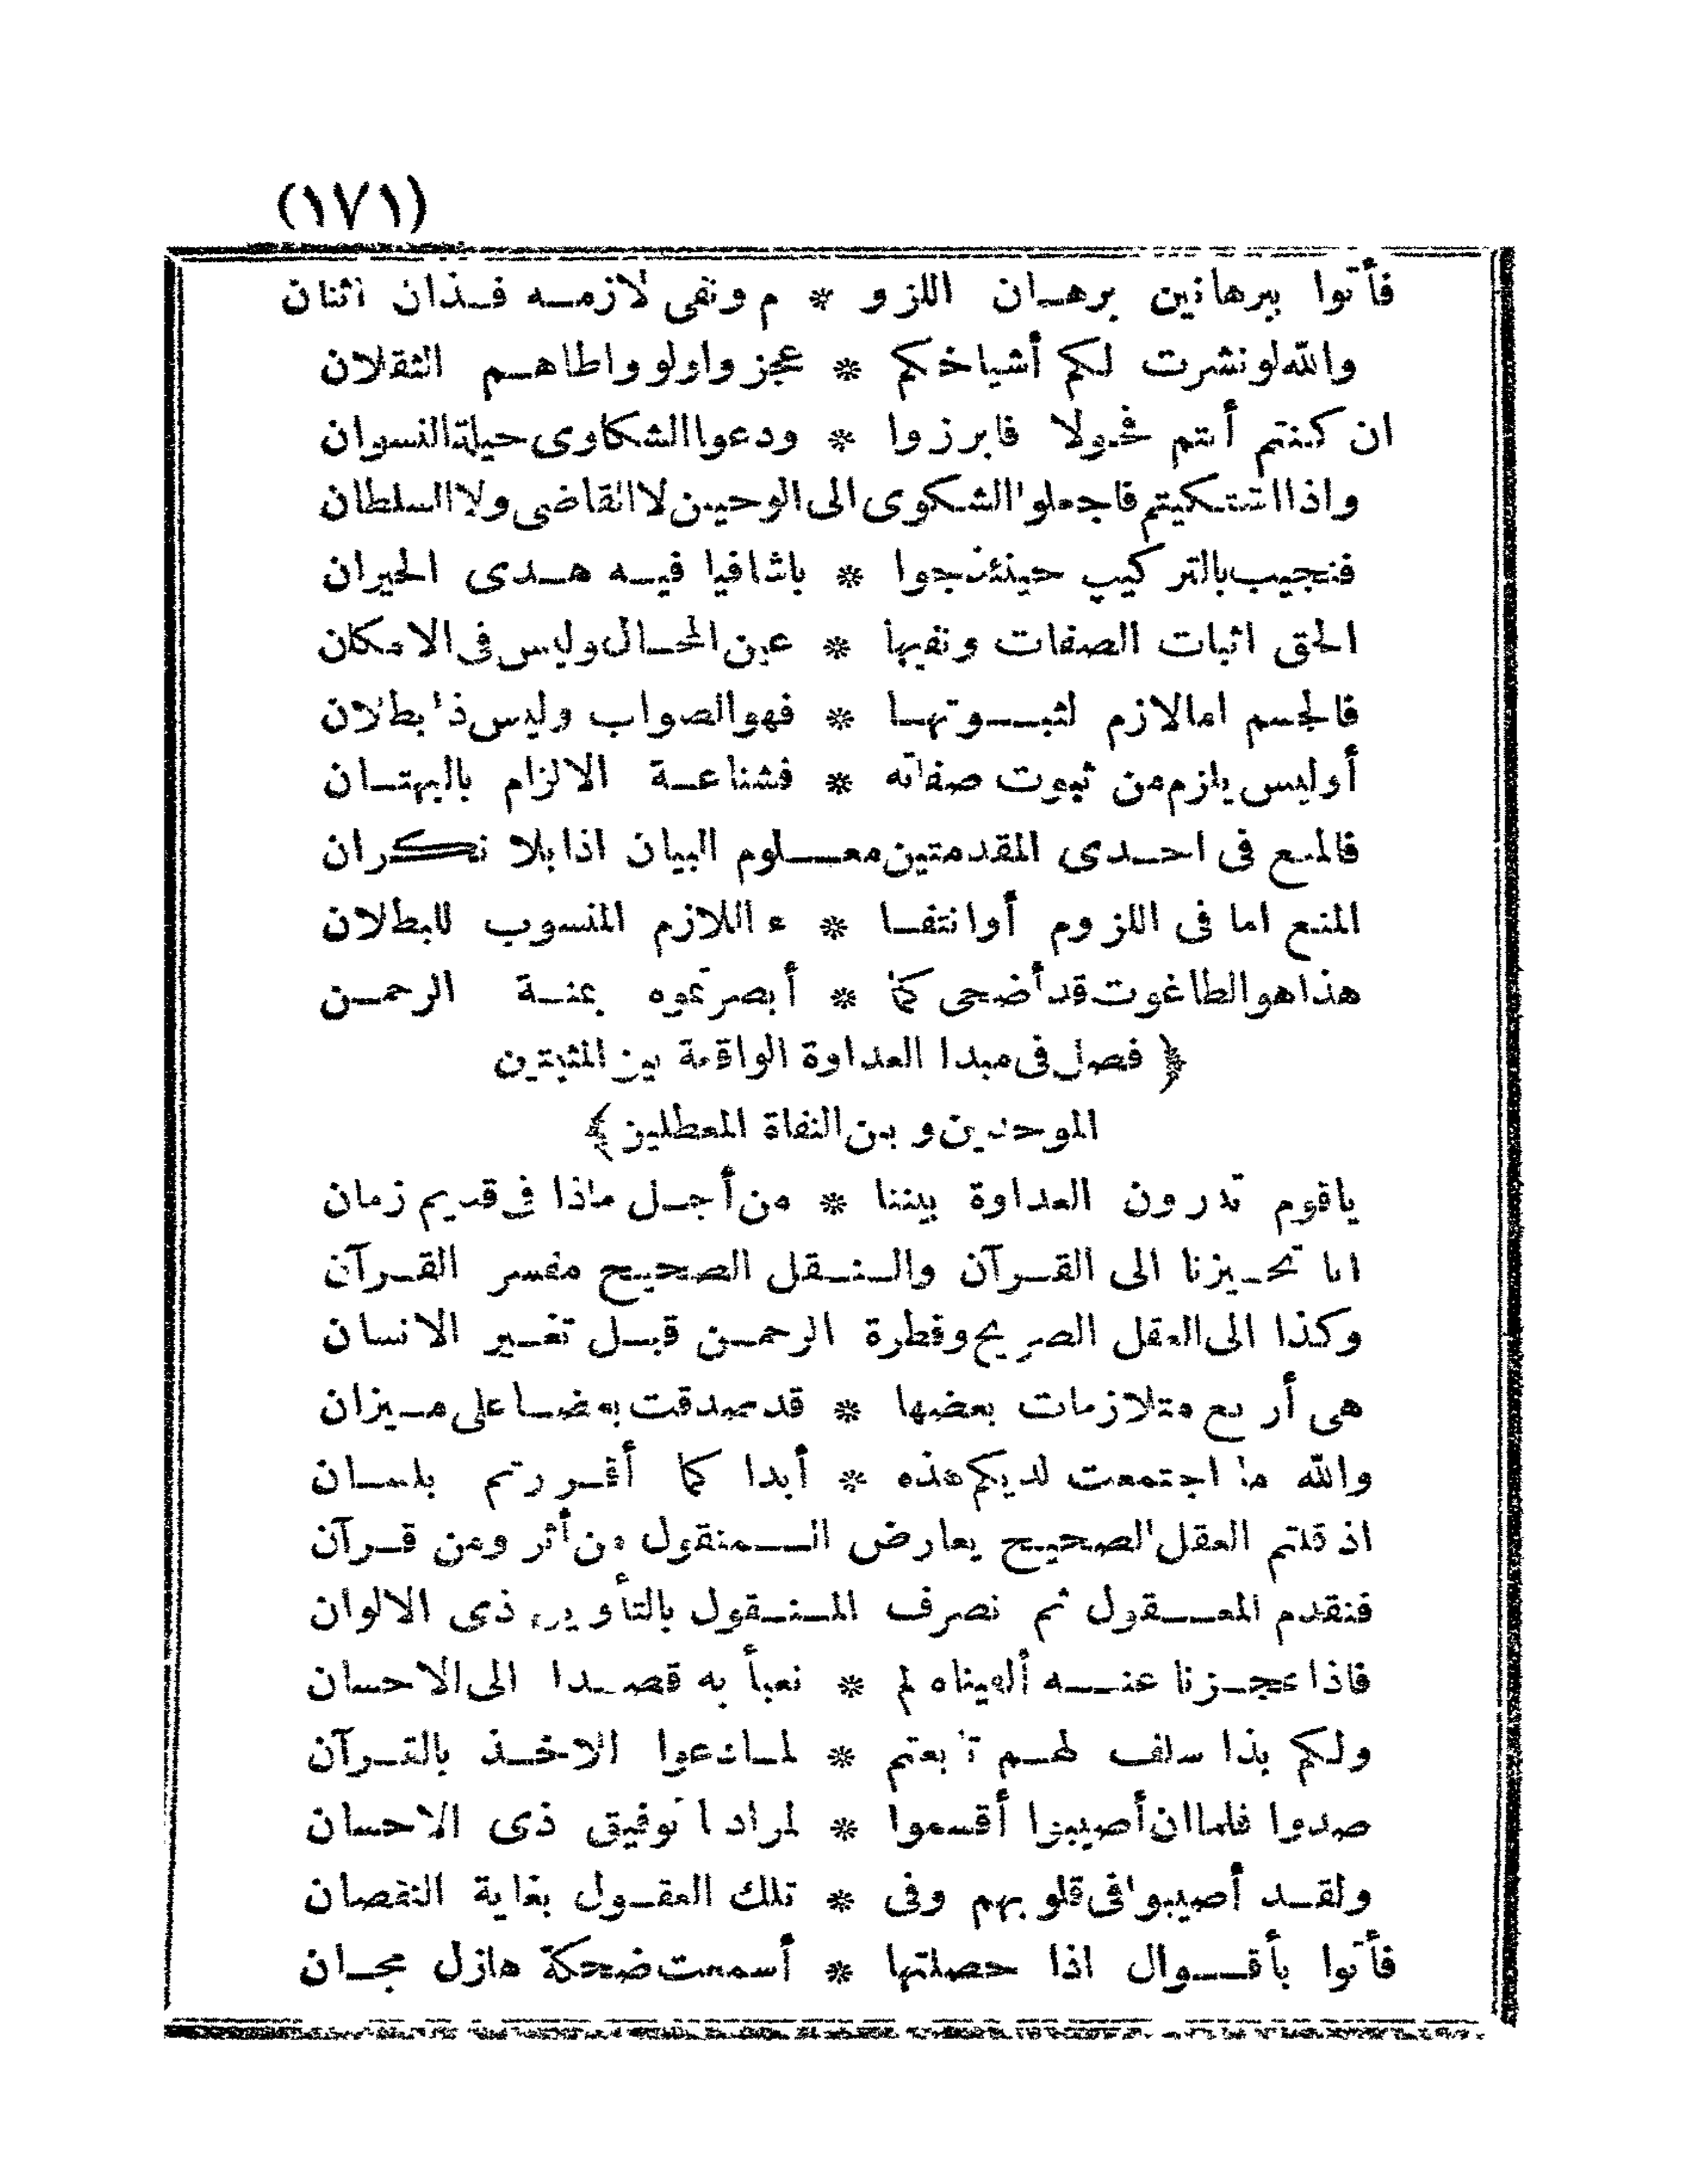 (١٧١)
فأتوا ببرهانين برهان اللزو * م ونفى لازمه فذان اثنان
والله لو نشرت لكم أشياخكم * عجزوا ولو واطاهم الثقلان
ان كنتم أنتم فحولا فابرزوا * ودعوا الشكاوى حيلة النسوان
واذا اشتكيتم فاجعلوا الشكوى الى الوحيين لا القاضى ولا السلطان
فنجيب بالتركيب حينئذ جوا * باشافيا فيه هدى الحيران
الحق اثبات الصفات ونفيها * عين المحال وليس فى الامكان
فالجسم اما لازم لثبوتها * فهو الصواب وليس ذا بطلان
أوليس يلزم من ثبوت صفاته * فشناعة الالزام بالبهتان
فالمنع فى احدى المقدمتين معلوم البيان اذا بلا نكران
المنع اما فى اللزوم أو انتفا * ء اللازم المنسوب للبطلان
هذا هو الطاغوت قد أضحى كما * أبصرتموه بمنة الرحمن
﴿ فصل فى مبدا العداوة الواقعة بين المثبتين
الموحدين وبين النفاة المعطلين ﴾
ياقوم تدرون العداوة بيننا * من أجل ماذا فى قديم زمان
انا تحيزنا الى القرآن والنقل الصحيح مفسر القرآن
وكذا الى العقل الصريح وفطرة الرحمن قبل تغير الانسان
هى أربع متلازمات بعضها * قد صدقت بعضا على ميزان
والله ما اجتمعت لديكم هذه * أبدا كما أقررتم بلسان
اذ قلتم العقل الصحيح يعارض المنقول من أثر ومن قرآن
فنقدم المعقول ثم نصرف المنقول بالتأويل ذى الالوان
فاذا عجزنا عنه ألقيناه لم * نعبأ به قصدا الى الاحسان
ولكم بذا سلف لهم تابعتم * لما دعوا الاخذ بالقرآن
صدوا فلما ان أصيبوا أقسموا * لمرادنا توفيق ذى الاحسان
ولقد أصيبوا فى قلوبهم وفى * تلك العقول بغاية النقصان
فأتوا بأقوال اذا حصلتها * أسمعت ضحكة هازل مجان